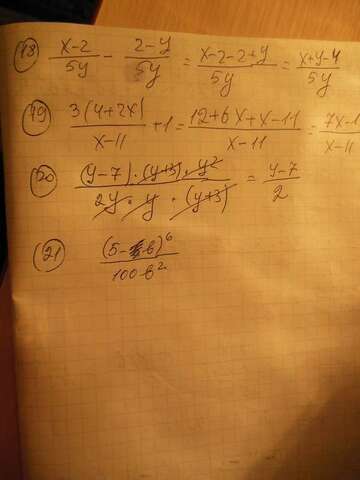 18) (x-2)/5y - (2-y)/5y = (x-2-2+y)/5y = (x+y-4)/5y
19) 3(4+2x)/(x-11) +1 = (12+6x+x-11)/(x-11) = 7x-1/x-11
20) (y-7)·(y+3)·y²/2y·y·(y+3) = (y-7)/2
21) (5-b)⁶/100b²